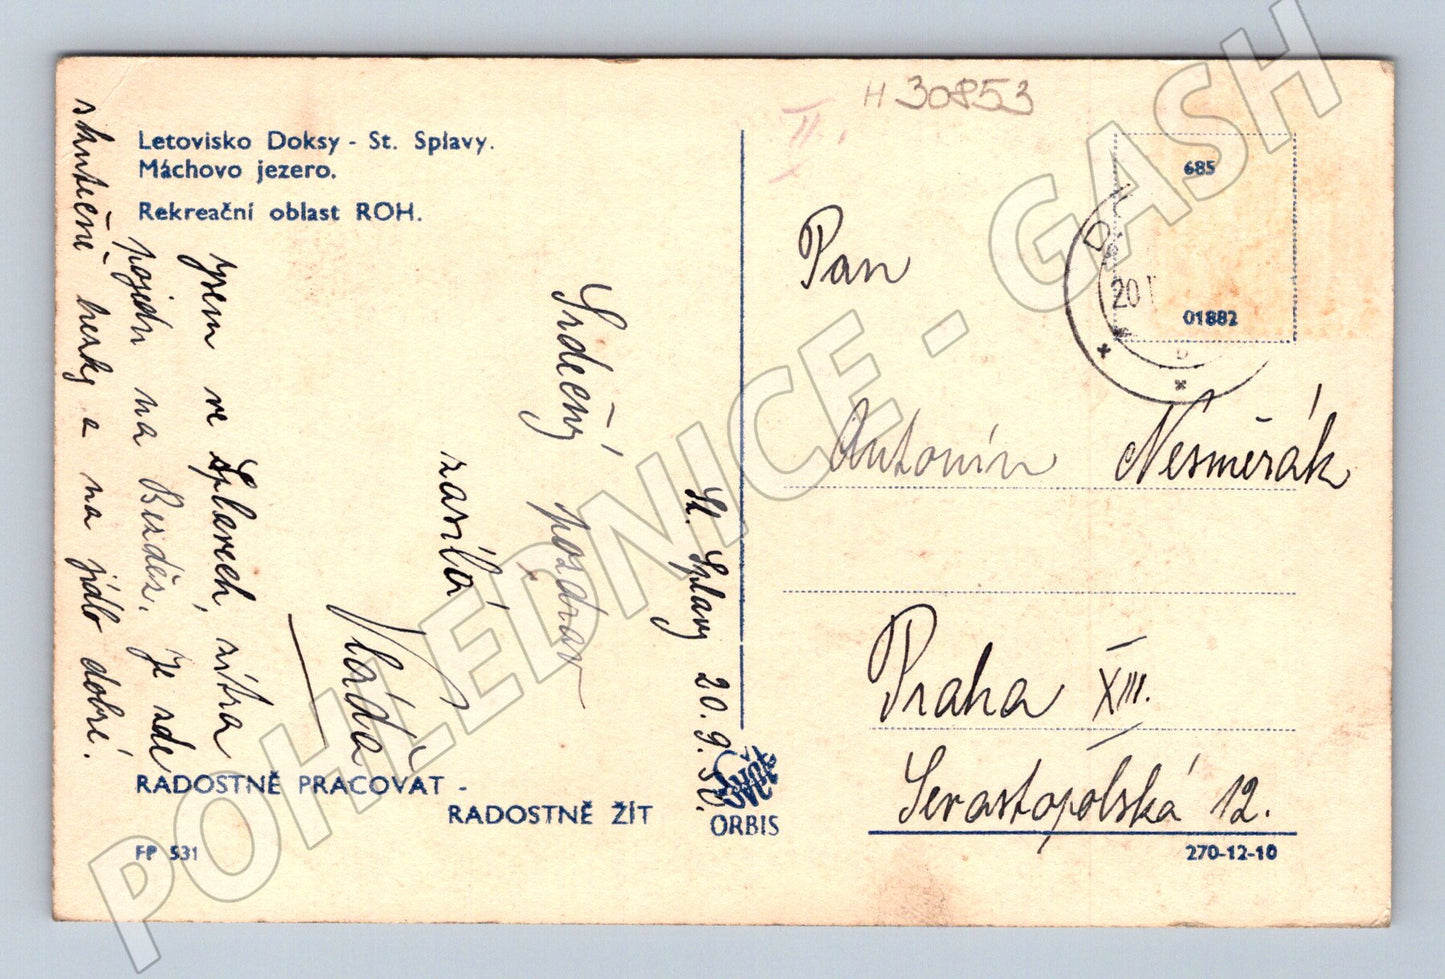 H 30853
II.
x
Letovisko Doksy - St. Splavy.
Máchovo jezero.
Rekreační oblast ROH.
St. Splavy 20. 9. 50.
Srdečný pozdrav
zasílá
Vláďa
jsem ve Splavech, zítra
pojedu na Bezděz. Je zde
skutečně hezky a na jídlo dobré.
RADOSTNĚ PRACOVAT -
RADOSTNĚ ŽÍT
FP 531
ORBIS
685
01882
20
Pan
Antonín Nesměrák
Praha XIII.
Sevastopolská 12.
270-12-10
POHLEDNICE - GASH